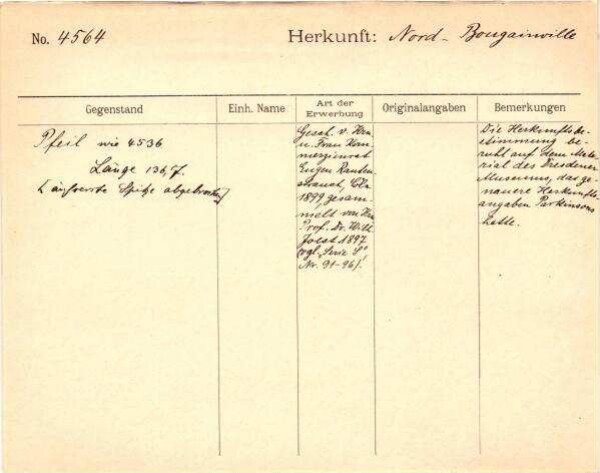 No. 4564 Herkunft: Nord-Bougainville
Gegenstand Einh. Name Art der Erwerbung Originalangaben Bemerkungen
Pfeil wie 4536
Länge 136,7.
[äusserste Spitze abgebrochen]
Gesch. v. Hrn
u. Frau Kom-
merzienrat
Eugen Rauten-
strauch, Cöln
1899 gesam-
melt von Hn
Prof. Dr. Wilh.
Joest 1897
(vgl. Serie "S"
Nr. 91-96).
Die Herkunftsbe-
stimmung be-
ruht auf dem Mate-
rial des Dresdener
Museums, das ge-
nauere Herkunfts-
angaben Parkinsons
hatte.